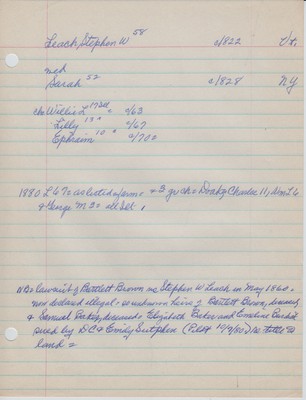 Leach, Stephen W 58 c/822 Vt.
md
Sarah 52 c/828 NY
ch Willis L 17 Ill. c/63
Lilly 13 " c/67
Ephraim 10 " c/70
1880 L 67 as listed farmer & 3 gr ch Charles 11, Wm L 6
& George M 3 all Ill.
NB lawsuit of Bartlett Brown vs Stephen W Leach in May 1860.
now declared illegal. unknown heirs of Bartlett Brown, deceased
& Samuel Baker, deceased & Elizabeth Baker and Emeline
sued by DC & Emily Sutphen (10/9/80) to title to
land